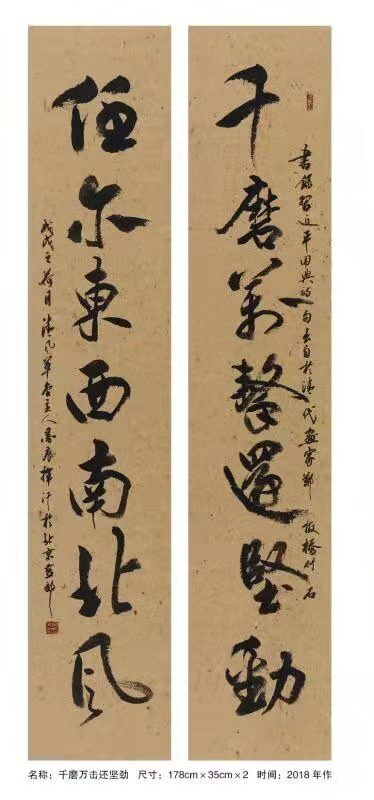 千磨萬擊還堅勁
書錄習近平用典詩句出自於清代畫家鄭板橋竹石
任尔東西南北风
戊戌之荷月清风草堂主人揮汗於北京
名称：千磨万击还坚劲 尺寸：178cm×35cm×2 时间：2018年作